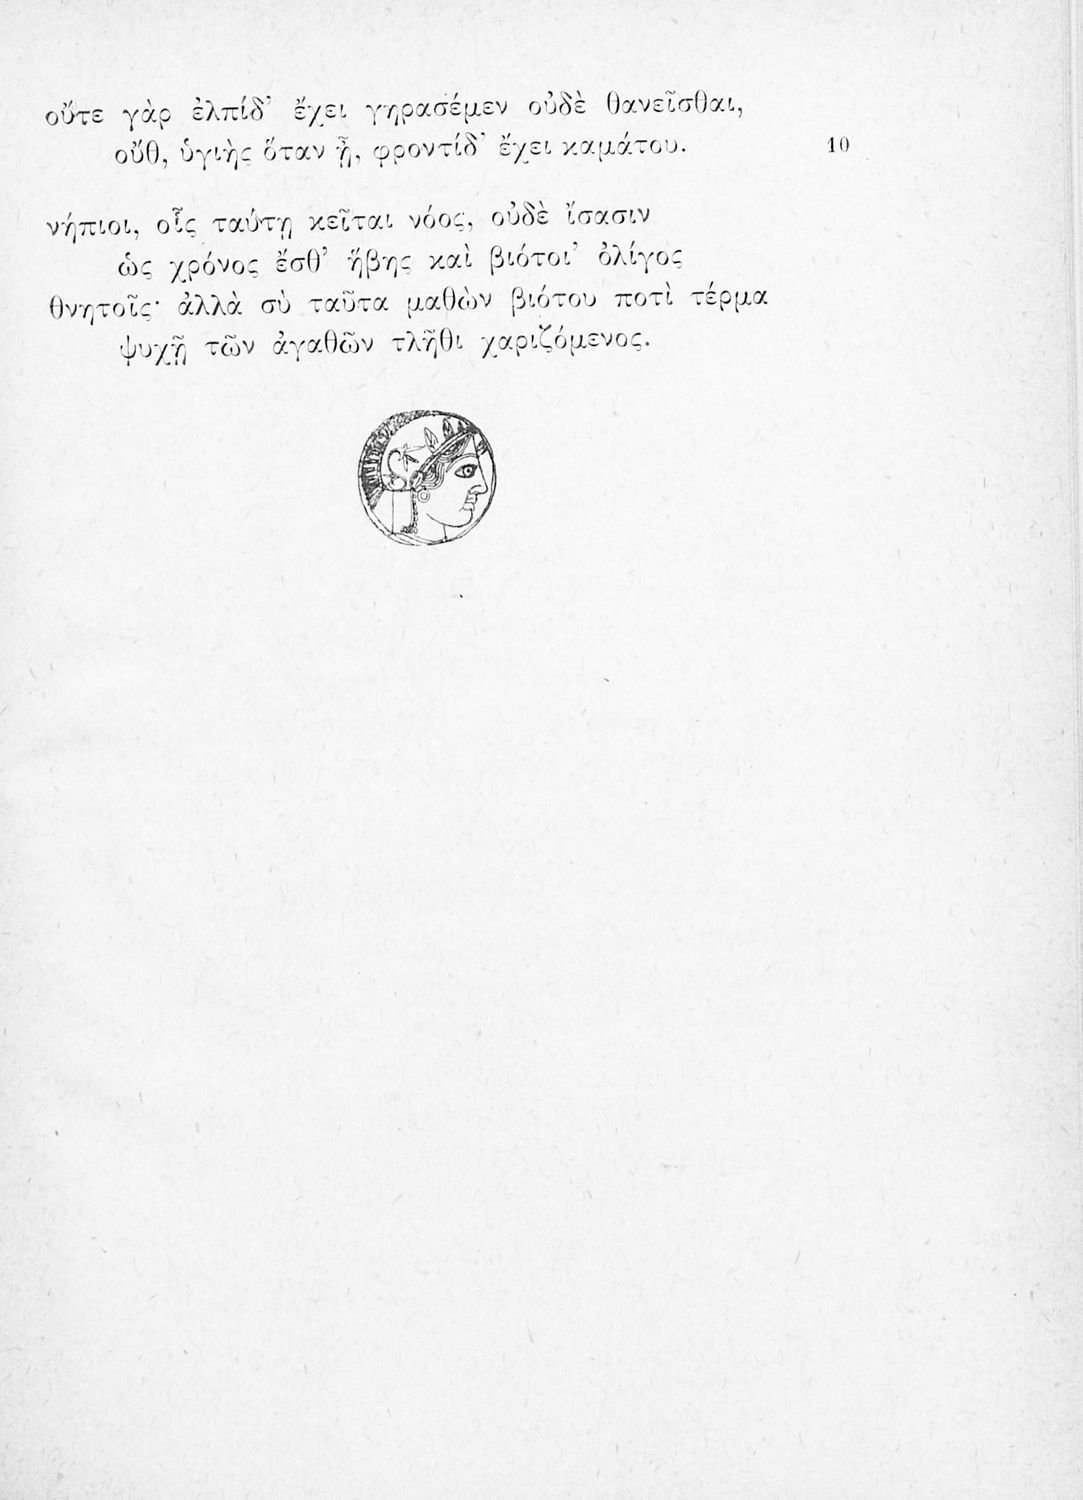 οὔτε γὰρ ἐλπίδ’ ἔχει γηρασέμεν οὐδὲ θανεῖσθαι,
οὔθ, ὑγιὴς ὅταν ᾖ, φροντίδ’ ἔχει καμάτου. 10
νήπιοι, οἷς ταύτῃ κεῖται νόος, οὐδὲ ἴσασιν
ὡς χρόνος ἔσθ’ ἥβης καὶ βιότοι’ ὀλίγος
θνητοῖς· ἀλλὰ σὺ ταῦτα μαθὼν βιότου ποτὶ τέρμα
ψυχῇ τῶν ἀγαθῶν τλῆθι χαριζόμενος.